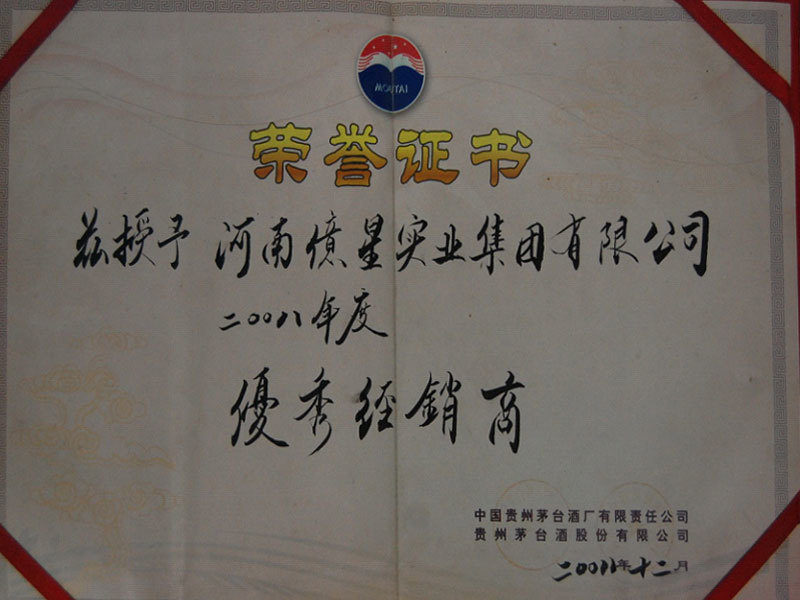 MOUTAI
荣誉证书
兹授予 河南億星实业集团有限公司
二00八年度
優秀经銷商
中国贵州茅台酒厂有限责任公司
贵州茅台酒股份有限公司
二00八年十二月